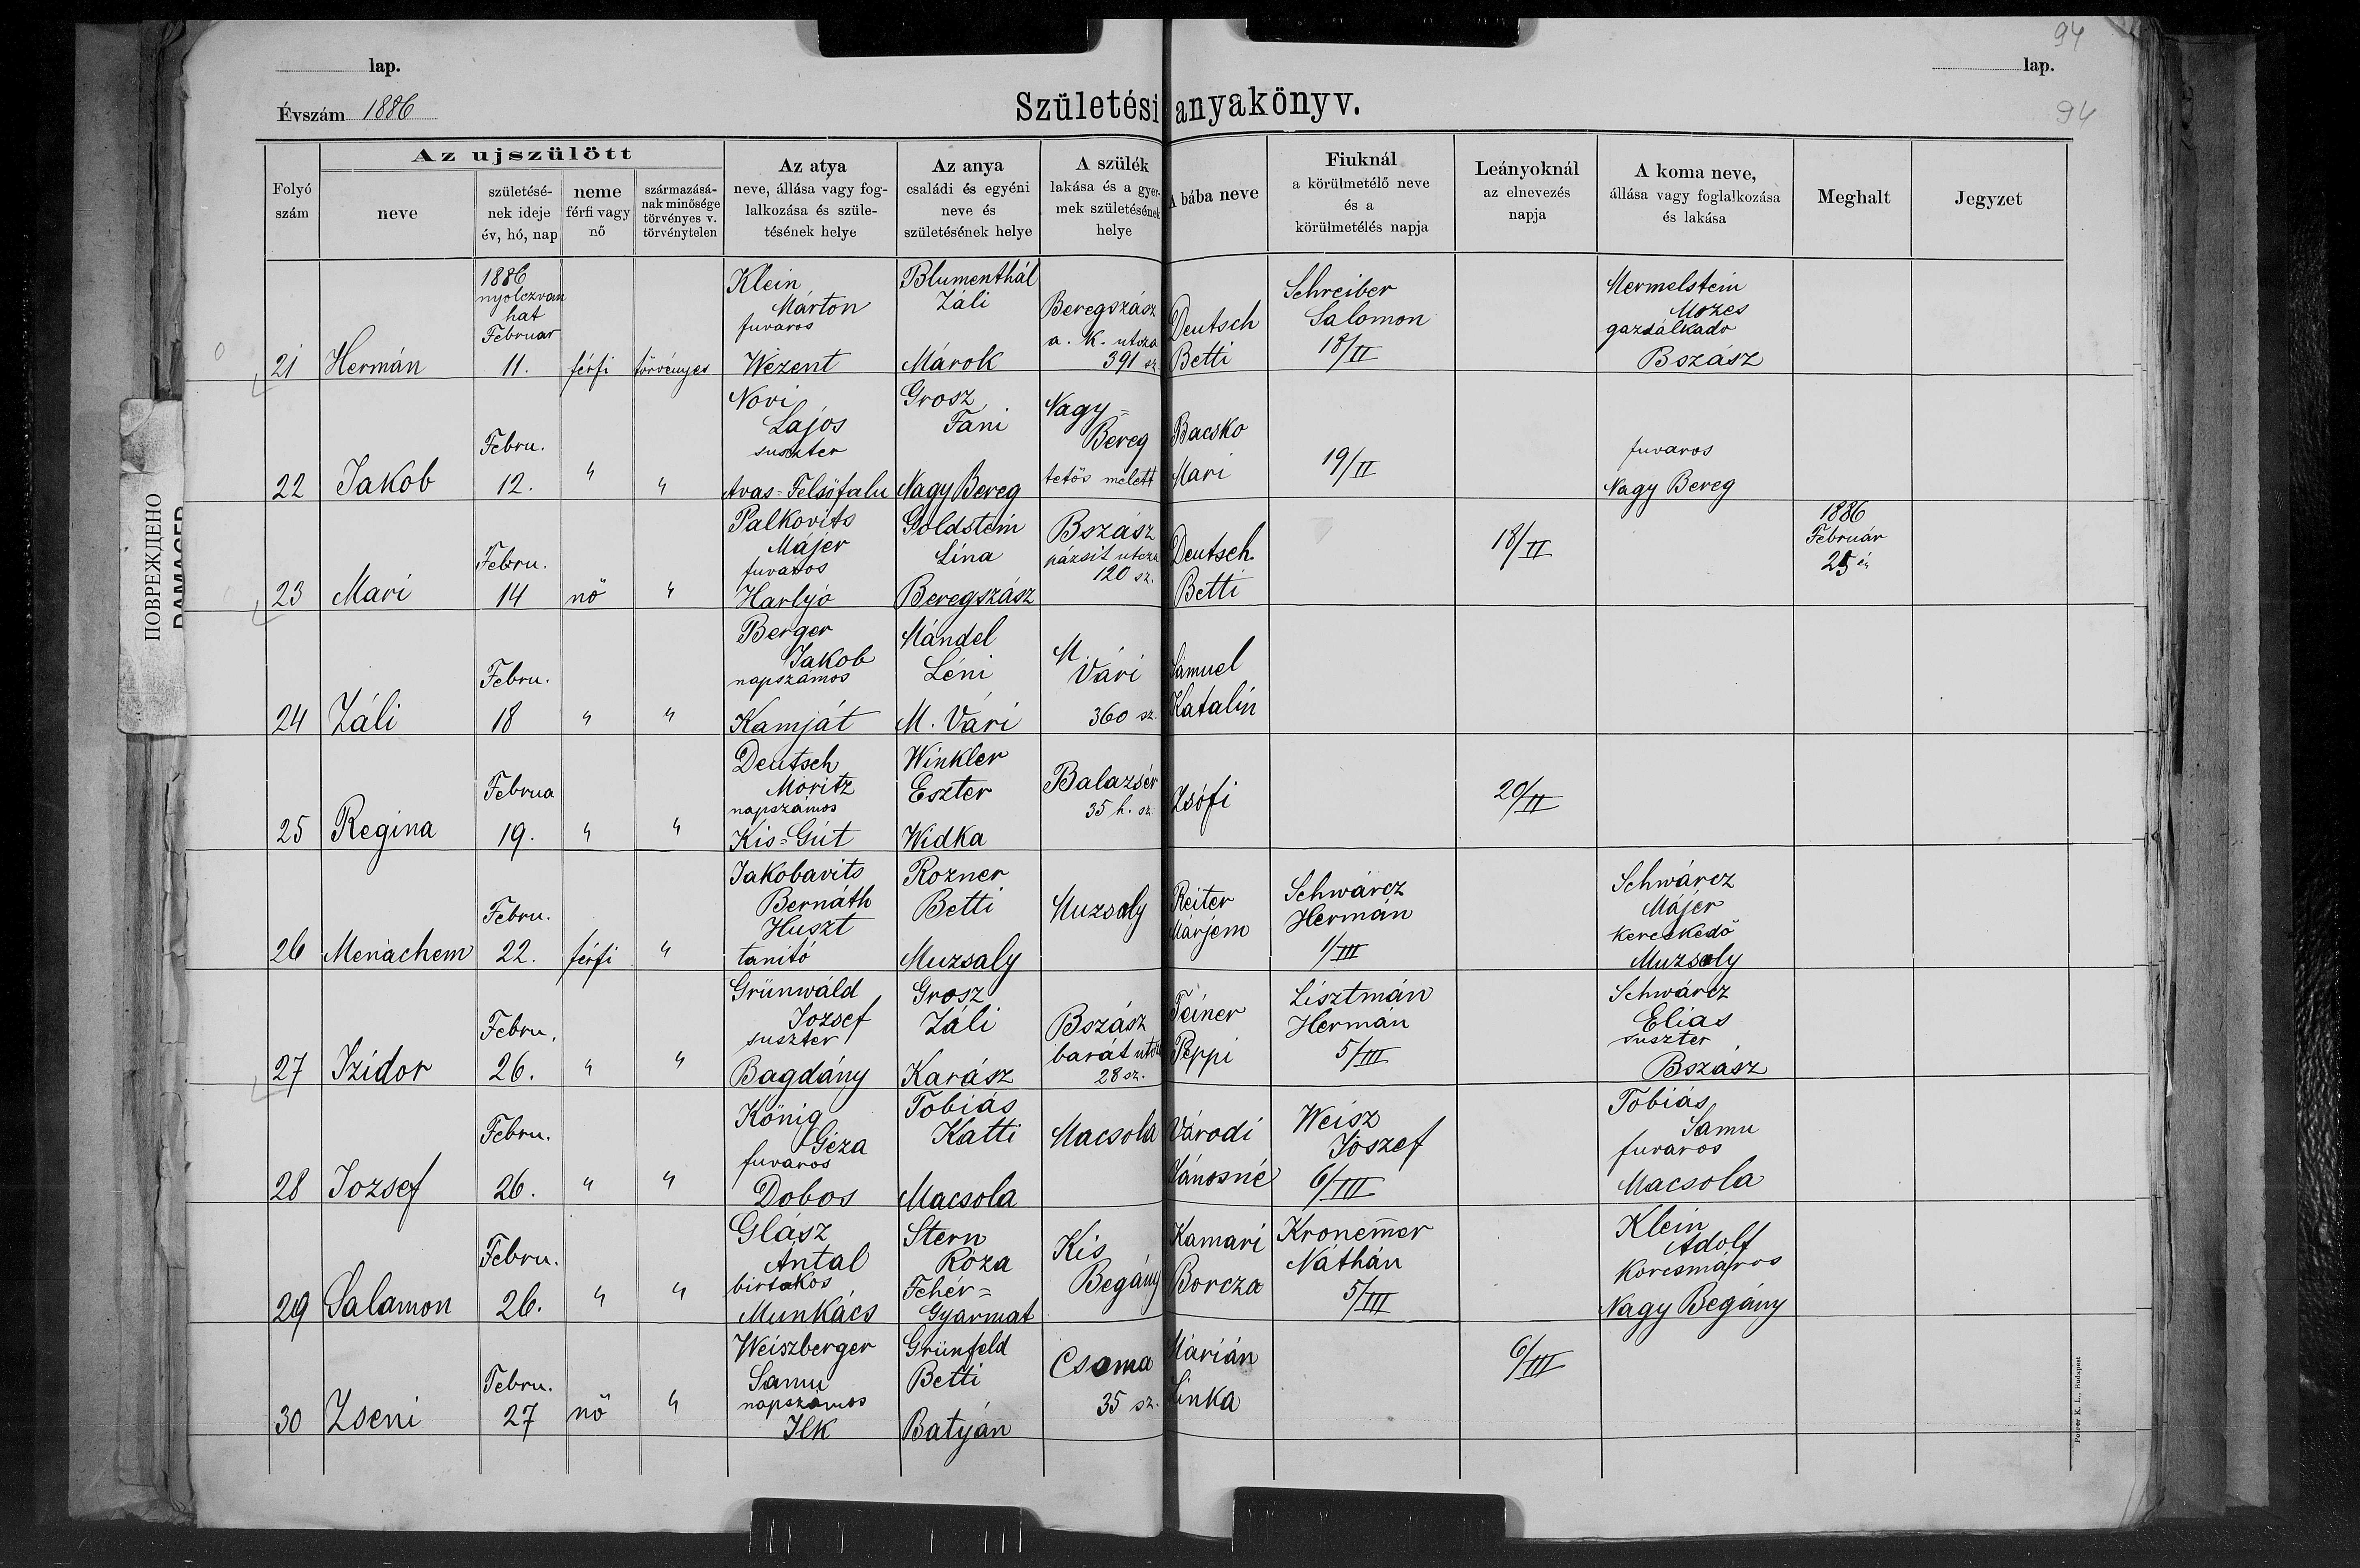 94
lap.
lap.
Évszám 1886
Születési anyakönyv.
94
Az ujszülött
Folyó szám
neve
születésének ideje év, hó, nap
neme férfi vagy nő
származásának minősége törvényes v. törvénytelen
Az atya neve, állása vagy foglalkozása és születésének helye
Az anya családi és egyéni neve és születésének helye
A szülék lakása és a gyermek születésének helye
A bába neve
Fiuknál a körülmetélő neve és a körülmetélés napja
Leányoknál az elnevezés napja
A koma neve, állása vagy foglalkozása és lakása
Meghalt
Jegyzet
21 Hermán 1886 nyolczvan hat Februar 11. férfi törvényes Klein Márton fuvaros Wezent Blumenthál Záli Márok Beregszász a. K. utsza 391 sz. Deutsch Betti Schreiber Salomon 18/II Mermelstein Mozes gazdálkado Bszász
22 Jakob Febru. 12. " " Novi Lajos suszter Avas=Felsőfalu Grosz Fáni Nagy Bereg Nagy= Bereg tetős melett Bacsko Mari 19/II fuvaros Nagy Bereg
23 Mari Febru. 14 nő " Palkovits Májer fuvaros Harlyó Goldstein Lina Beregszász Bszász pázsit utcza 120 sz. Deutsch Betti 18/II 1886 Február 25 én
24 Záli Febru. 18 " " Berger Jakob napszámos Kamját Mándel Léni M. Vári M. Vári 360 sz. Sámuel Katalin
25 Regina Februa 19. " " Deutsch Moritz napszámos Kis=Gút Winkler Eszter Widka Balazsér 35 h. sz. Zsófi 20/II
26 Menachem Febru. 22. férfi " Jakobavits Bernáth Huszt tanitó Rozner Betti Muzsaly Muzsaly Reiter Márjem Schwárcz Hermán 1/III Schwárcz Májer kereskedő Muzsaly
27 Izidor Febru. 26. " " Grünwáld Jozsef suszter Bagdány Grosz Záli Karász Bszász barát utsza 28 sz. Feiner Peppi Lisztmán Hermán 5/III Schwárcz Elias suszter Bszász
28 Jozsef Febru. 26. " " König Géza fuvaros Dobos Tobiás Katti Macsola Macsola Várodi Jánosné Weisz Jószef 6/III Tobiás Samu fuvaros Macsola
29 Salamon Febru. 26. " " Glász Antal birtokos Munkács Stern Róza Fehér= Gyarmat Kis Begány Kamari Borcza Kronem̅er Náthán 5/III Klein Adolf Korcsmáros Nagy Begány
30 Zseni Febru. 27 nő " Weiszberger Samu napszámos Ilk Grünfeld Betti Batyán Csoma 35 sz. Márián Linka 6/III
ПОВРЕЖДЕНО
DAMAGED
Posner K. L., Budapest